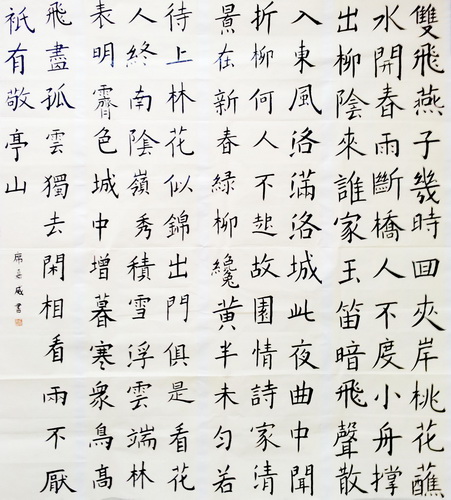 雙飛燕子幾時回夾岸桃花蘸
水開春雨斷橋人不度小舟撐
出柳陰來誰家玉笛暗飛聲散
入東風洛滿洛城此夜曲中聞
折柳何人不起故園情詩家清
景在新春綠柳纔黃半未勻若
待上林花似錦出門俱是看花
人終南陰嶺秀積雪浮雲端林
表明霽色城中增暮寒衆鳥高
飛盡孤雲獨去閑相看兩不厭
祇有敬亭山
威書